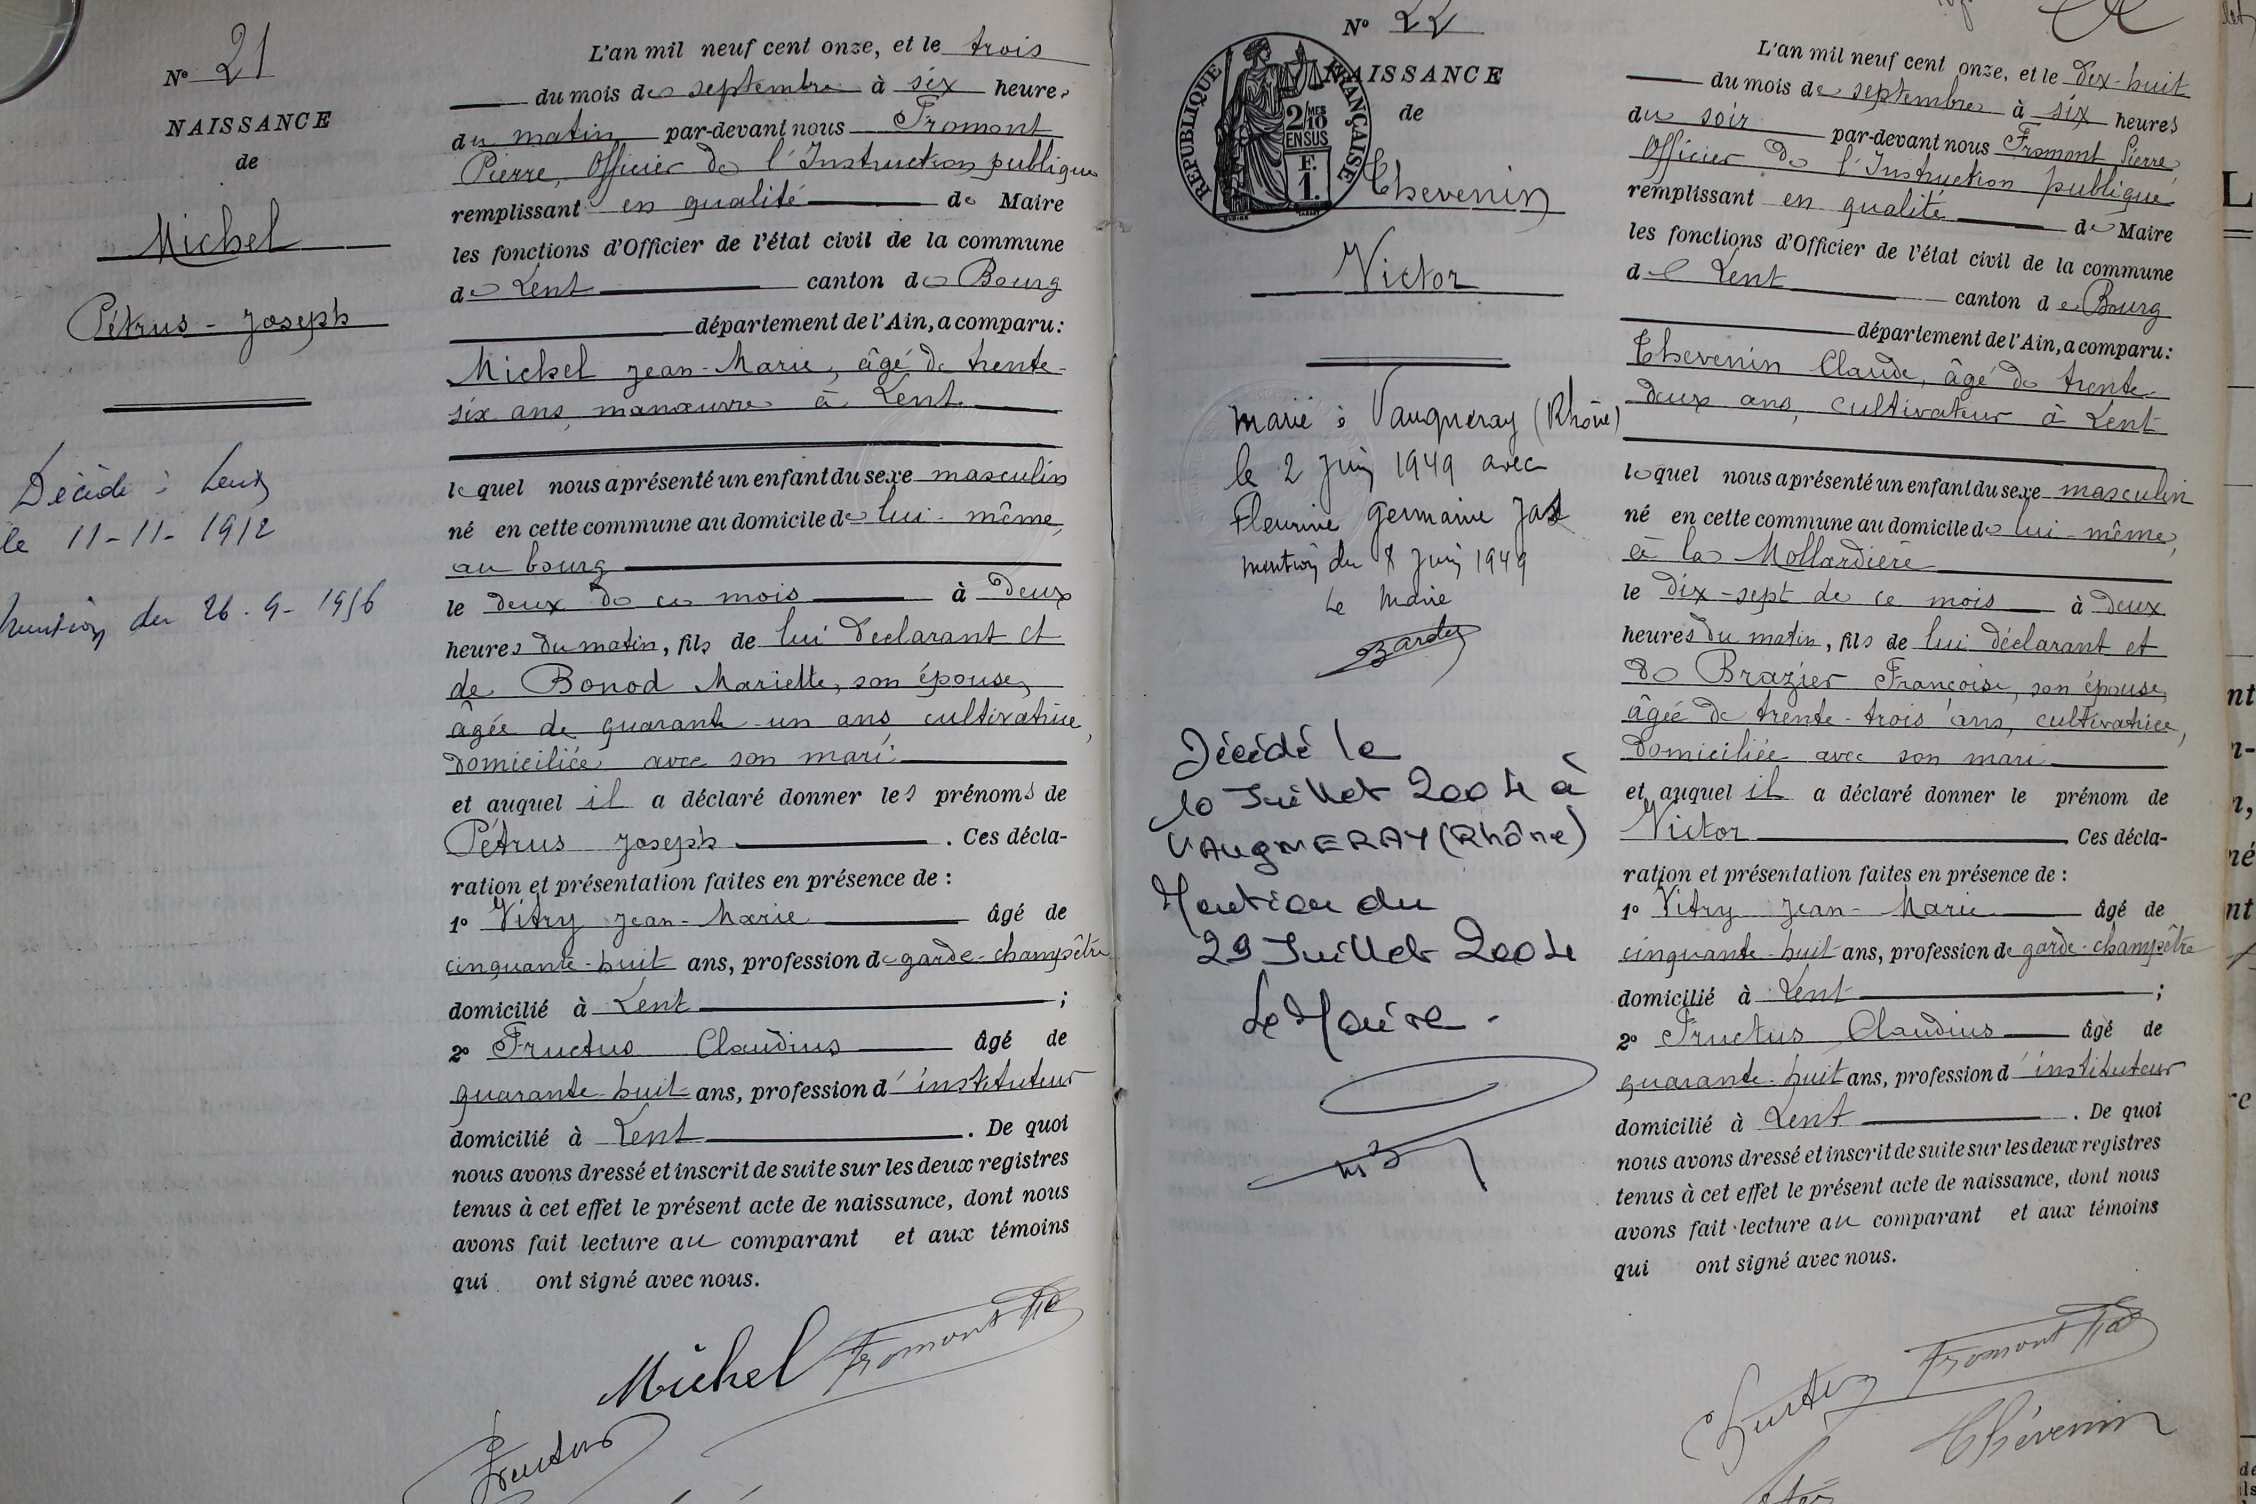 N° 21
NAISSANCE
de
Michel
Pétrus-Joseph
Décédé à Lent
le 11-11-1912
mention du 26-9-1956
L'an mil neuf cent onze, et le trois
du mois de septembre à six heures
du matin par-devant nous Fromont
Pierre, Officier de l'Instruction publique
remplissant en qualité de Maire
les fonctions d'Officier de l'état civil de la commune
de Lent canton de Bourg
département de l'Ain, a comparu:
Michel Jean-Marie, âgé de trente-
six ans, manœuvre à Lent
lequel nous a présenté un enfant du sexe masculin
né en cette commune au domicile de lui-même,
au bourg
le deux de ce mois à deux
heures du matin, fils de lui déclarant et
de Bonod Mariette, son épouse,
âgée de quarante-un ans, cultivatrice,
domiciliée avec son mari
et auquel il a déclaré donner les prénoms de
Pétrus Joseph. Ces décla-
ration et présentation faites en présence de :
1° Vitry Jean-Marie âgé de
cinquante-huit ans, profession de garde-champêtre
domicilié à Lent ;
2° Fructus Claudius âgé de
quarante-huit ans, profession d'instituteur
domicilié à Lent. De quoi
nous avons dressé et inscrit de suite sur les deux registres
tenus à cet effet le présent acte de naissance, dont nous
avons fait lecture au comparant et aux témoins
qui ont signé avec nous.
Michel Fromont Pre
Fructus
N° 22
RÉPUBLIQUE FRANÇAISE
2/10 EN SUS
F. 1.
NAISSANCE
de
Thevenin
Victor
marié à Vaugneray (Rhône)
le 2 Juin 1949 avec
Fleurine Germaine
mention du 8 Juin 1949
Le Maire
Décédé le
10 Juillet 2004 à
VAUGNERAY (Rhône)
Mention du
29 Juillet 2004
Le Maire.
L'an mil neuf cent onze, et le dix-huit
du mois de septembre à six heures
du soir par-devant nous Fromont Pierre,
Officier de l'Instruction publique
remplissant en qualité de Maire
les fonctions d'Officier de l'état civil de la commune
de Lent canton de Bourg
département de l'Ain, a comparu:
Thevenin Claude, âgé de trente-
deux ans, cultivateur à Lent
lequel nous a présenté un enfant du sexe masculin
né en cette commune au domicile de lui-même,
à la Mollardière
le dix-sept de ce mois à deux
heures du matin, fils de lui déclarant et
de Brazier Françoise, son épouse,
âgée de trente-trois ans, cultivatrice,
domiciliée avec son mari
et auquel il a déclaré donner le prénom de
Victor Ces décla-
ration et présentation faites en présence de :
1° Vitry Jean-Marie âgé de
cinquante-huit ans, profession de garde-champêtre
domicilié à Lent ;
2° Fructus Claudius âgé de
quarante-huit ans, profession d'instituteur
domicilié à Lent. De quoi
nous avons dressé et inscrit de suite sur les deux registres
tenus à cet effet le présent acte de naissance, dont nous
avons fait lecture au comparant et aux témoins
qui ont signé avec nous.
Fromont Pre
Thévenin